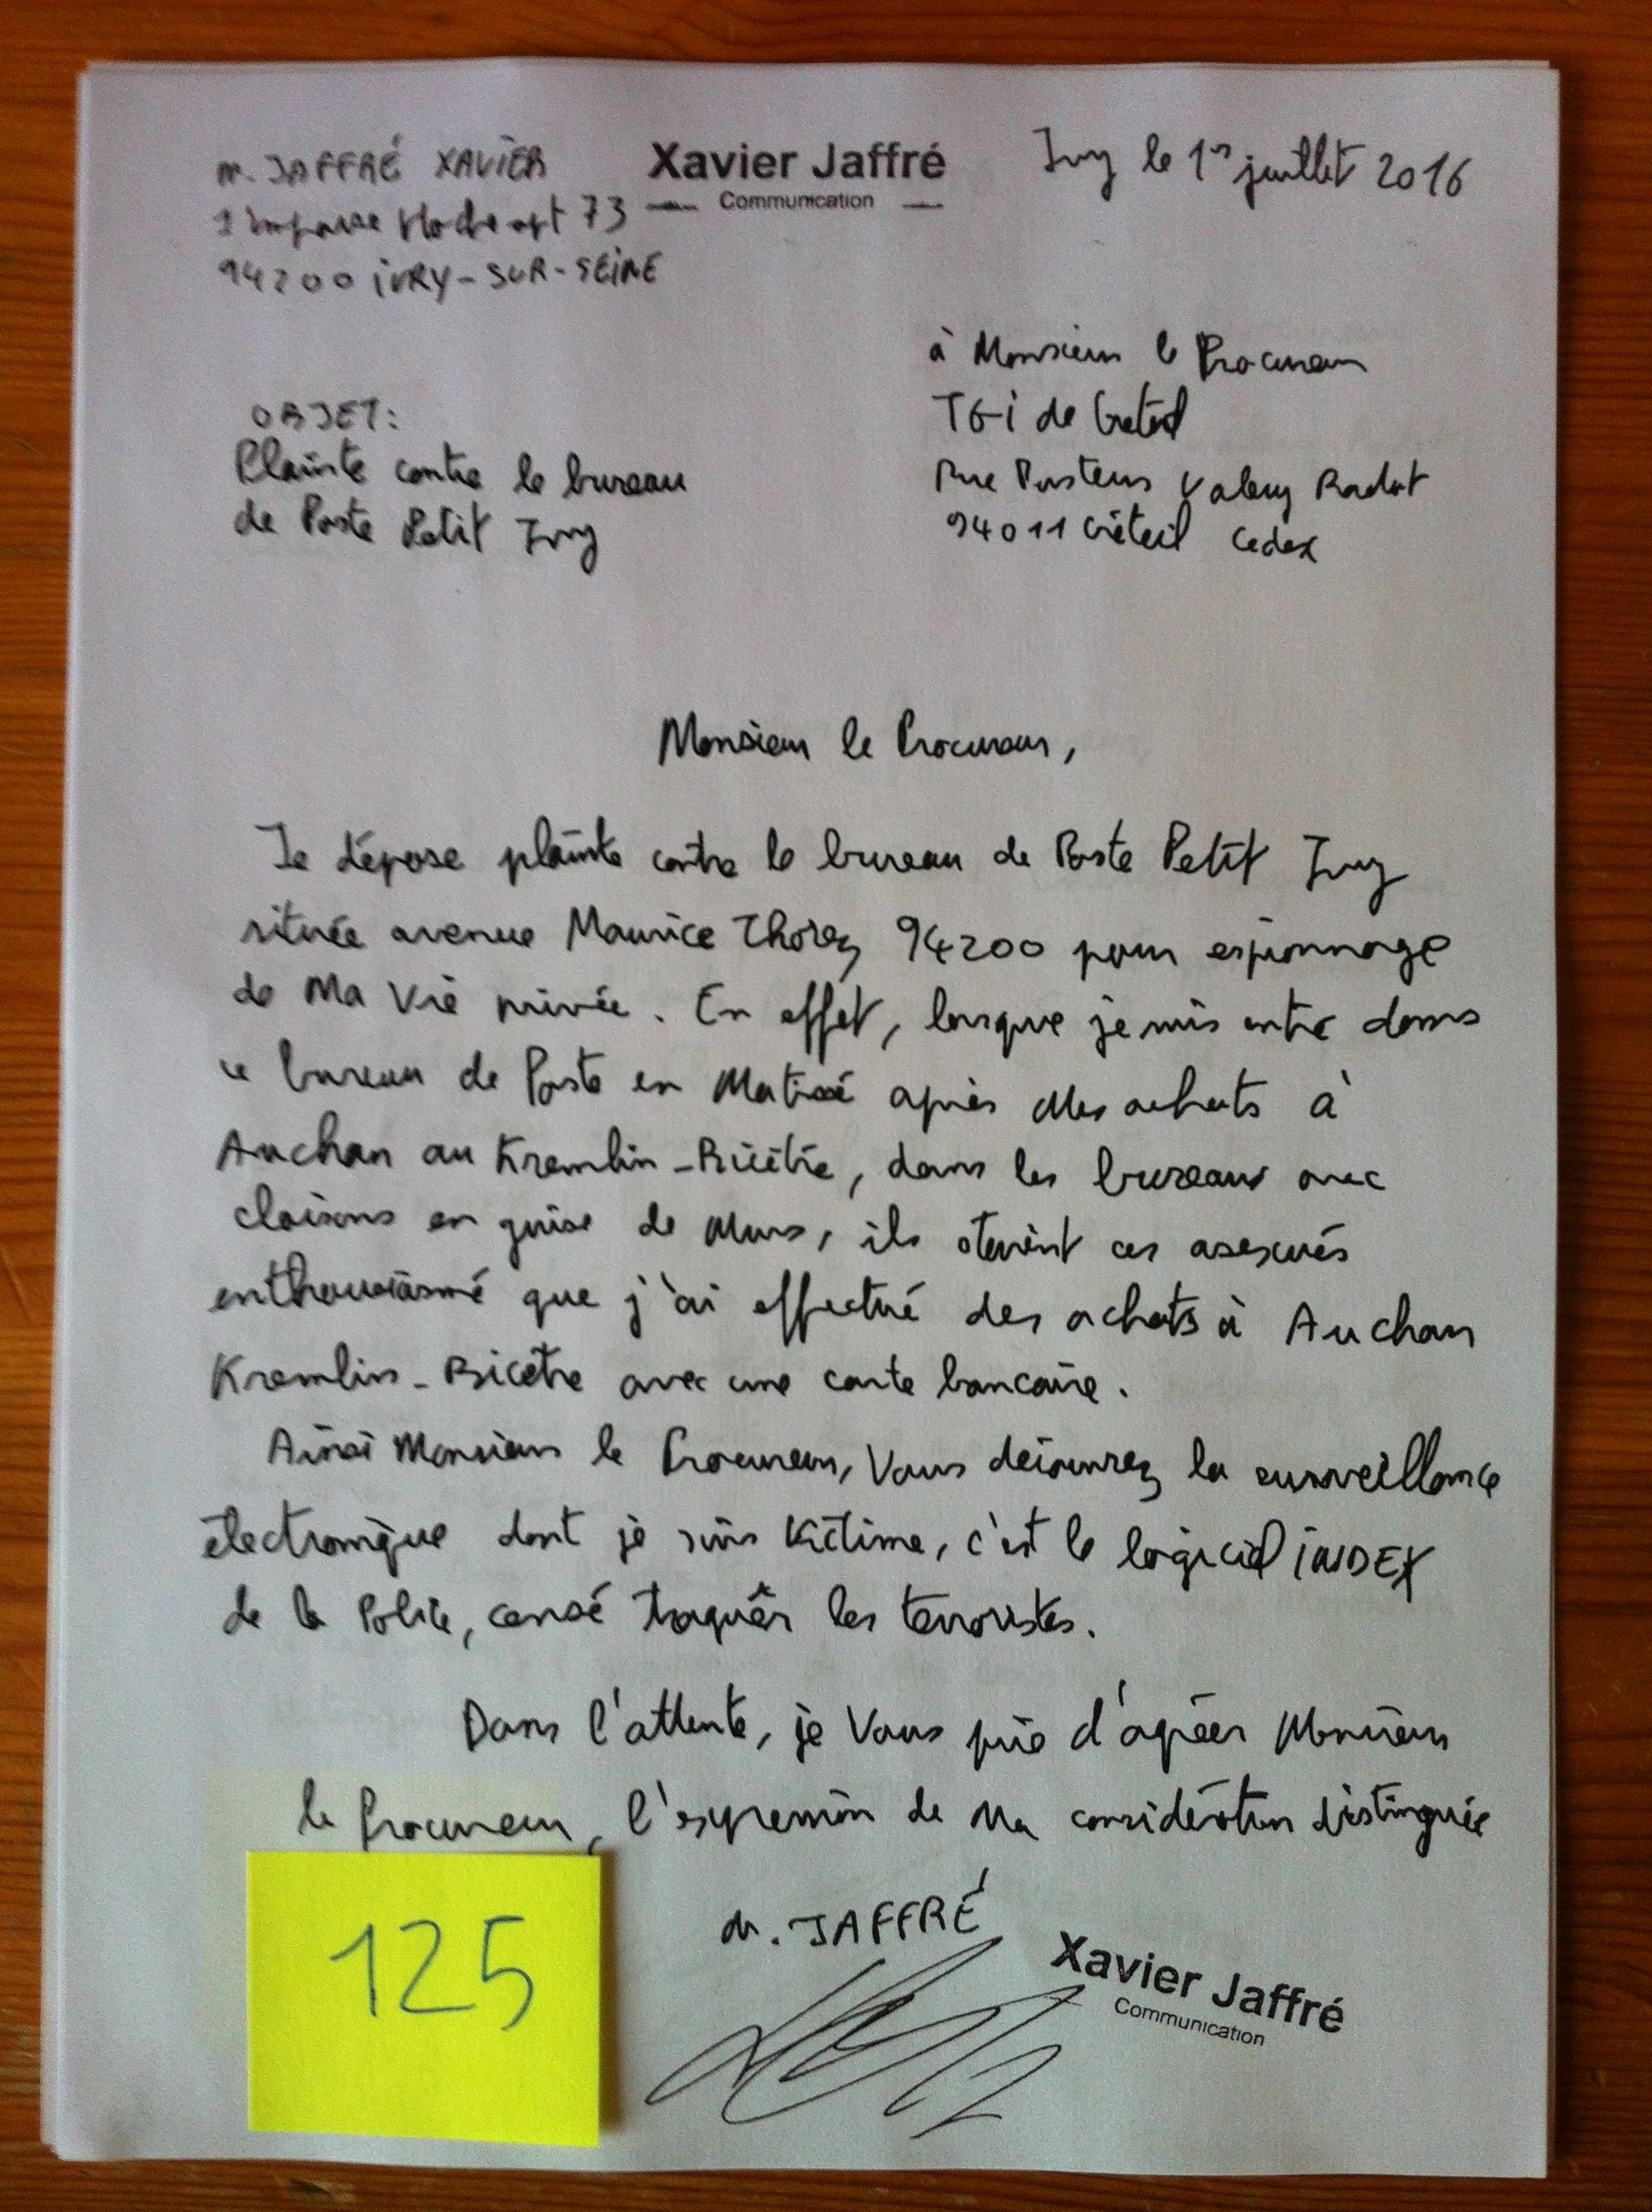 M. JAFFRÉ XAVIER
1 impasse Hoche apt 73
94200 IVRY-SUR-SEINE
Xavier Jaffré
Communication
Ivry le 1er juillet 2016
à Monsieur le Procureur
TGI de Créteil
Rue Pasteur Valery Radot
94011 Créteil Cedex
OBJET:
Plainte contre le bureau
de Poste Petit Ivry
Monsieur le Procureur,
Je dépose plainte contre le bureau de Poste Petit Ivry
située avenue Maurice Thorez 94200 pour espionnage
de Ma Vie privée. En effet, lorsque je suis entré dans
ce bureau de Poste en Matinée après Mes achats à
Auchan au Kremlin-Bicêtre, dans les bureaux avec
cloisons en guise de Murs, ils étaient ces asexués
enthousiasmé que j'ai effectué des achats à Auchan
Kremlin-Bicêtre avec une carte bancaire.
Ainsi Monsieur le Procureur, Vous découvrez la surveillance
électronique dont je suis Victime, c'est le logiciel INDEX
de la Police, censé traquer les terroristes.
Dans l'attente, je Vous prie d'agréer Monsieur
le Procureur, l'expression de Ma considération distinguée
M. JAFFRÉ
Xavier Jaffré
Communication
125